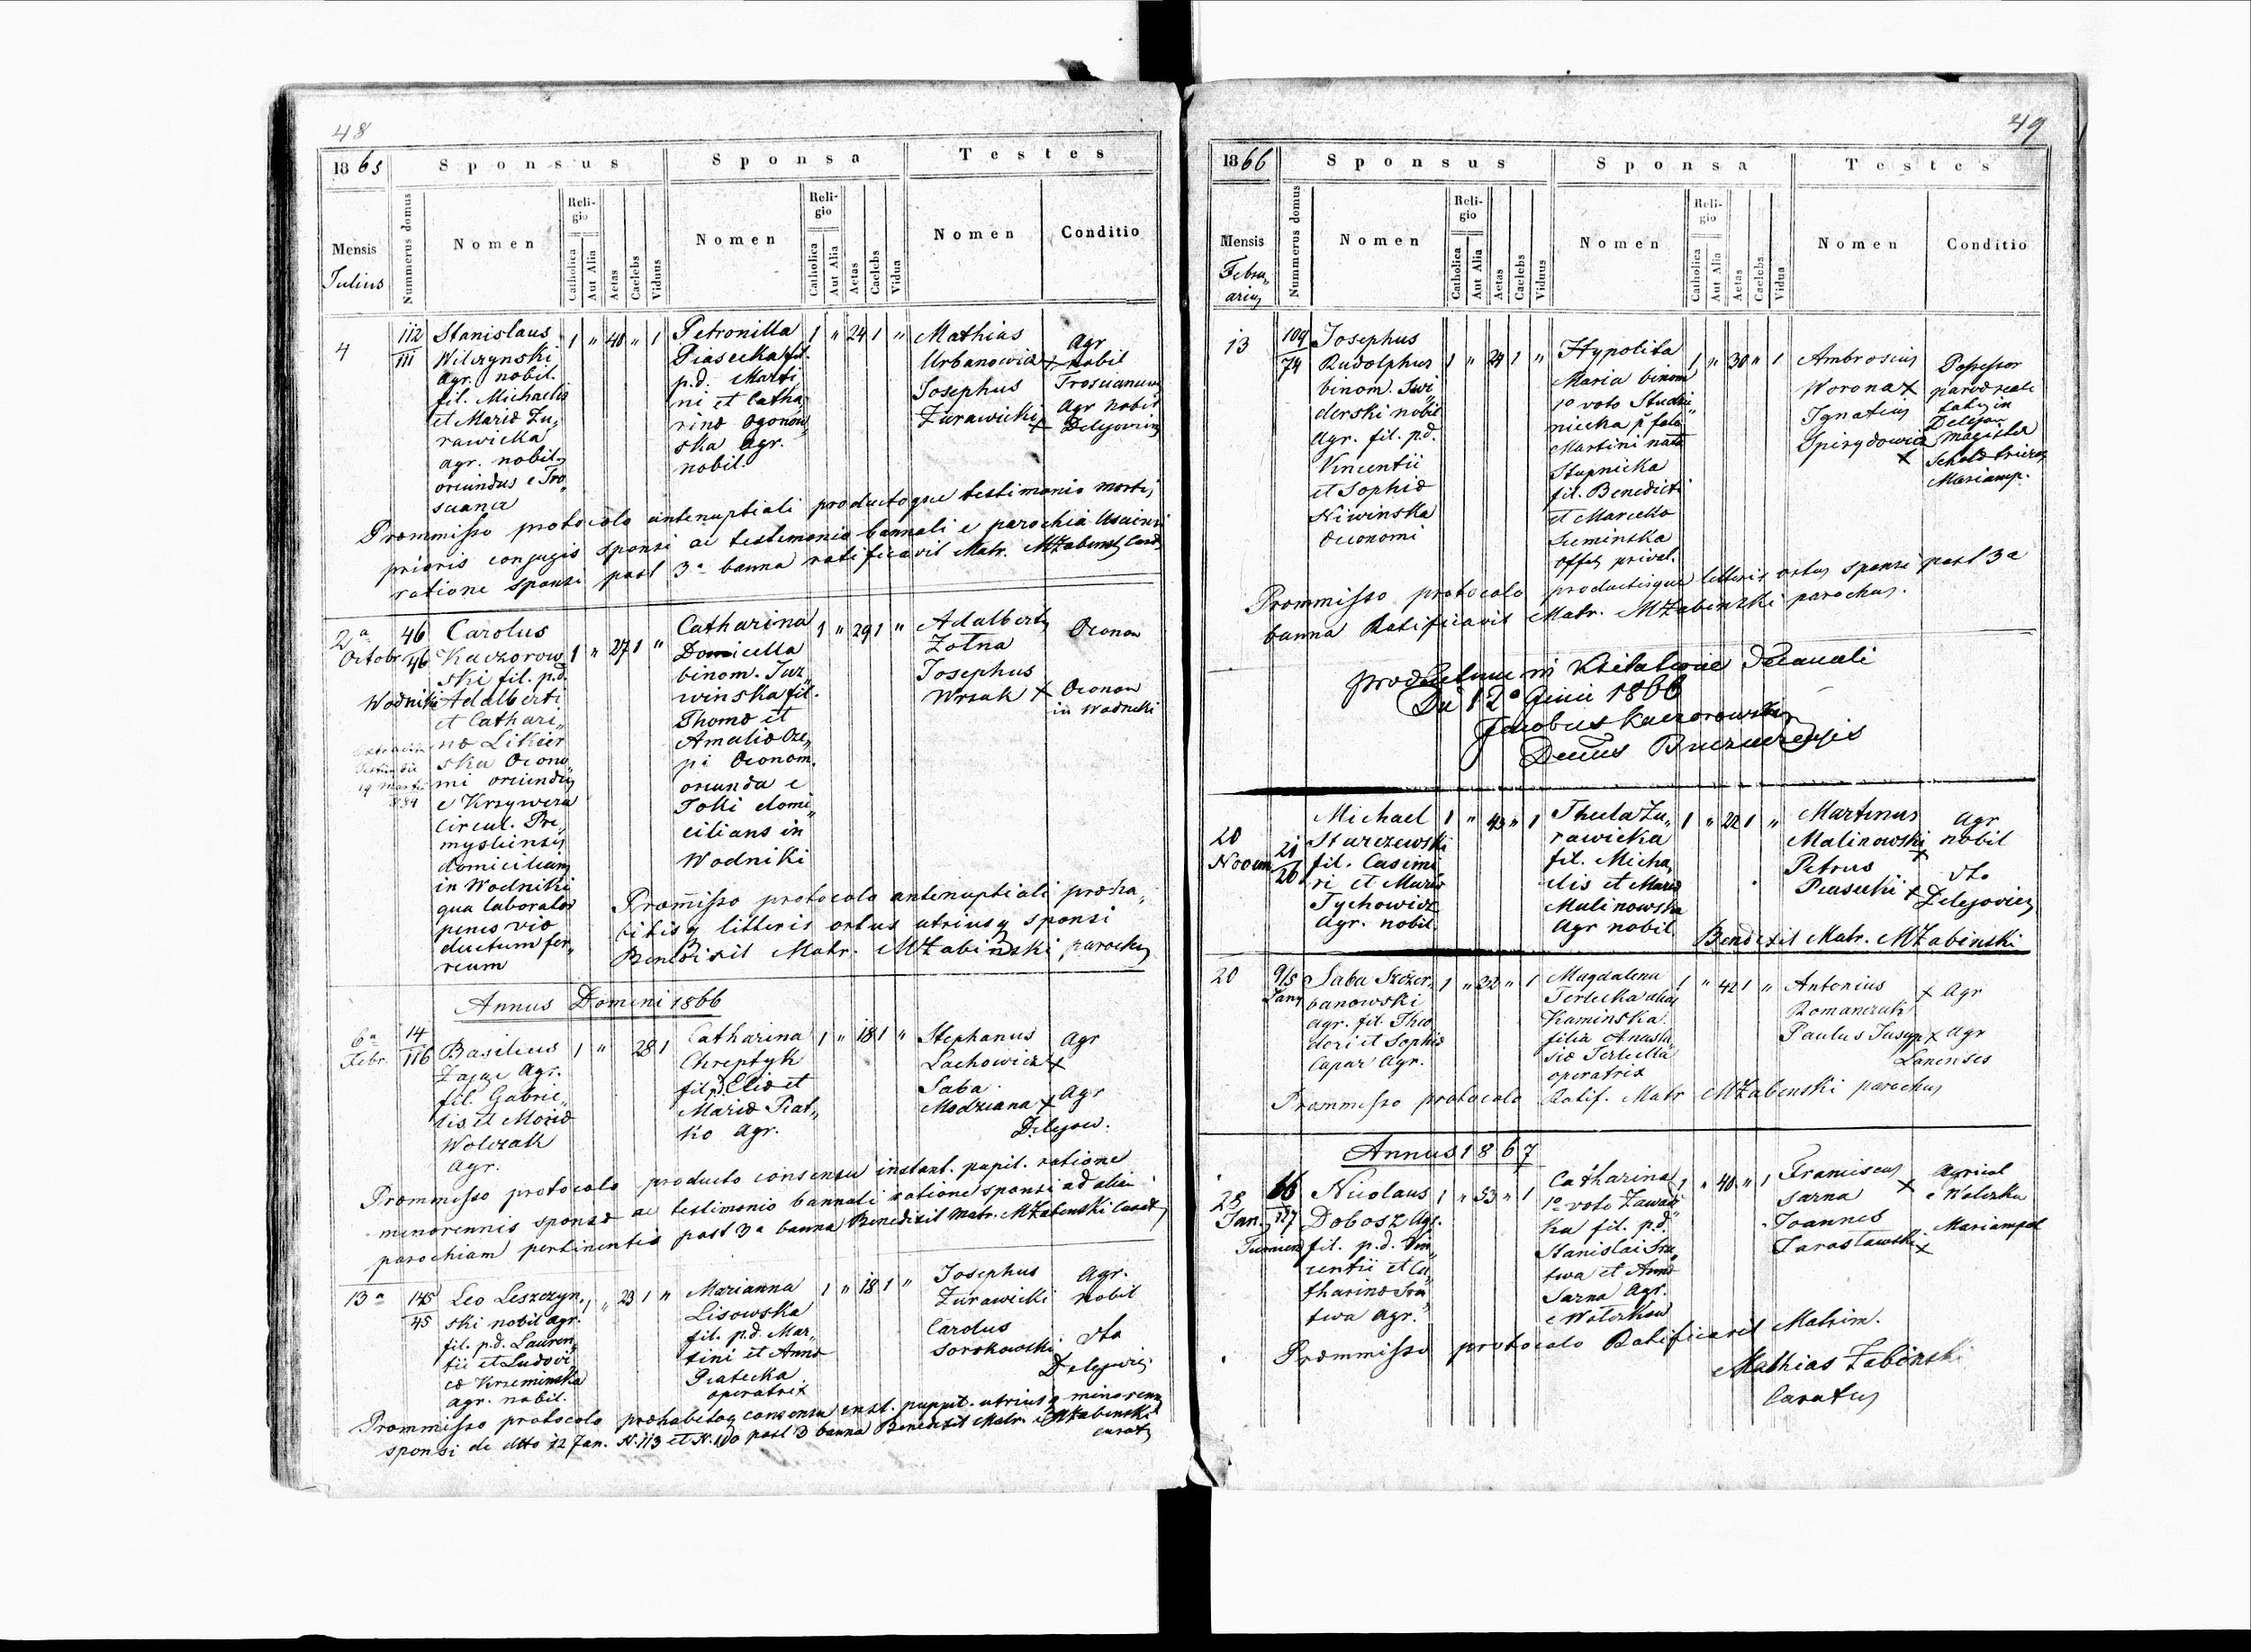 48
1865
Sponsus
Sponsa
Testes
Mensis
Julius
Nummerus domus
Nomen
Religio
Catholica
Aut Alia
Aetas
Caelebs
Viduus
Nomen
Religio
Catholica
Aut Alia
Aetas
Caelebs
Vidua
Nomen
Conditio
4
112
111
Stanislaus
Wilczynski
agr. nobil.
fil. Michaelis
et Maria Zu„
rawicka
agr. nobil.
oriundus e Tro„
scianca
1 „ 48 „ 1
Petronilla
Piasecka fil.
p.d. Marti„
ni et Catha„
rina Ogonow„
ska agr.
nobil.
1 „ 24 1 „
Mathias
Urbanowicz +
Josephus
Zurawicki +
Agr
nobil
Agr nobil
Prommisso protocolo antenuptiali productoque testimonio mortis
prioris conjugis sponsi ac testimonio bannali e parochia
ratione sponsi post 3a banna ratificavit Matr. MZabinski
2a
Octobr
46
46
Wodniki
Carolus
Kaczorow„
ski fil. p.d.
Adalberti
et Cathari„
na Likier
ska Oecono„
mi oriundus
e Krzywcza
Circul. Pre„
mysliensis
domicilians
in Wodniki
qua laborator
penes via
ductum fer„
reum
1 „ 27 1 „
Catharina
Domicella
binom. Juz„
winska fil.
Thoma et
Amalia
Oeconom.
oriunda e
domi„
cilians in
Wodniki
1 „ 29 1 „
Adalbertus
Zotna
Josephus
Wrzak +
Oconom
Oconom
in Wodniki
Pramisso protocolo antenuptiali prodha„
bitisq litteris ortus utriusq sponsi
Benedixit Matr. MZabinski parochus
Annus Domini 1866
6a
Febr.
14
116
Basilius
Zajac Agr.
fil. Gabrie„
lis et Maria
Wolczak
Agr.
1 „ 28 1
Catharina
Chreptyk
fil. Elia et
Maria Piat„
ko Agr.
1 „ 18 1 „
Stephanus
Lachowicz +
Saba
Modziana +
Agr
Agr
Delejow.
Prommisso protocolo producto consensu instant. pupil. ratione
minorennis sponsa ac testimonio bannali ratione sponsi ad aliam
parochiam pertinentis post 3a banna Benedixit Matr. MZabinski
13a
145
45
Leo Leszczyn„
ski nobil agr.
fil. p.d. Lauren„
tii et Ludovi„
ca Krzeminska
agr. nobil.
1 „ 23 1 „
Marianna
Lisowska
fil. p.d. Mar„
tini et Anna
Piasecka
operatrix
1 „ 18 1 „
Josephus
Zurawicki
Carolus
Sorokowski
Agr.
nobil
dto
Prommisso protocolo prohabitoq consensu inst. puppil. utriusq minorenn
sponsi de dtto 12 Jan. N. 113 et post 3 banna Benedixit Matr. MZabinski
49
1866
Sponsus
Sponsa
Testes
Mensis
Febru„
arius
Nummerus domus
Nomen
Religio
Catholica
Aut Alia
Aetas
Caelebs
Viduus
Nomen
Religio
Catholica
Aut Alia
Aetas
Caelebs
Vidua
Nomen
Conditio
13
109
74
Josephus
Rudolphus
binom. Swi„
derski nobil
Agr. fil. p.d.
Vincentii
et Sophia
Niwinska
Oeconomi
1 „ 24 1 „
Hypolita
Maria binom
1o voto Studzi„
niecka
Martini nata
Stupnicka
fil. Benedicti
et Marcella
Siminska
privat.
1 „ 30 „ 1
Ambrosius
Worona +
Ignatius
Spirydowicz +
Possessor
in
Magister
Schola
Mariamp.
Prommisso protocolo productisque litteris ortus sponsi post 3a
banna Ratificavit Matr. MZabinski parochus.
productum in Visitatione Decanali
Die 12a Junii 1866
Jacobus Kaczorowski
20
Novem
21
26
Michael
Starczewski
fil. Casimi„
ri et Maria
Tychowicz
Agr. nobil
1 „ 43 „ 1
Thecla Zu„
rawicka
fil. Micha„
elis et Maria
Malinowska
Agr nobil
1 „ 22 1 „
Martinus
Malinowski +
Petrus
Piasecki +
Agr
nobil
dto
Benedixit Matr. MZabinski
20
Saba Szczer„
banowski
agr. fil. Theo
dori et Sophia
Capar Agr.
1 „ 32 „ 1
Magdalena
Terlecka alias
Kaminska
filia Anasta„
sia Terlecka
operatrix
1 „ 42 1 „
Antonius
Romanczuk
Paulus
+ Agr
+ Agr
Lanensis
Prommisso protocolo Ratif. Matr MZabinski parochus
Annus 1867
28
Jan.
66
127
Nicolaus
Dobosz Agr.
fil. p.d. Vin„
centii et Ca„
tharina
Agr.
1 „ 53 „ 1
Catharina
1o voto Zawadz„
ka fil. p.d.
Stanislai
et Anna
Sarna Agr.
1 „ 40 „ 1
Franciscus
Sarna +
Joannes
Jaroslawski +
Agricol
Mariampol
Prommisso protocolo Ratificavit Matrim.
Mathias Zabinski
Curatus